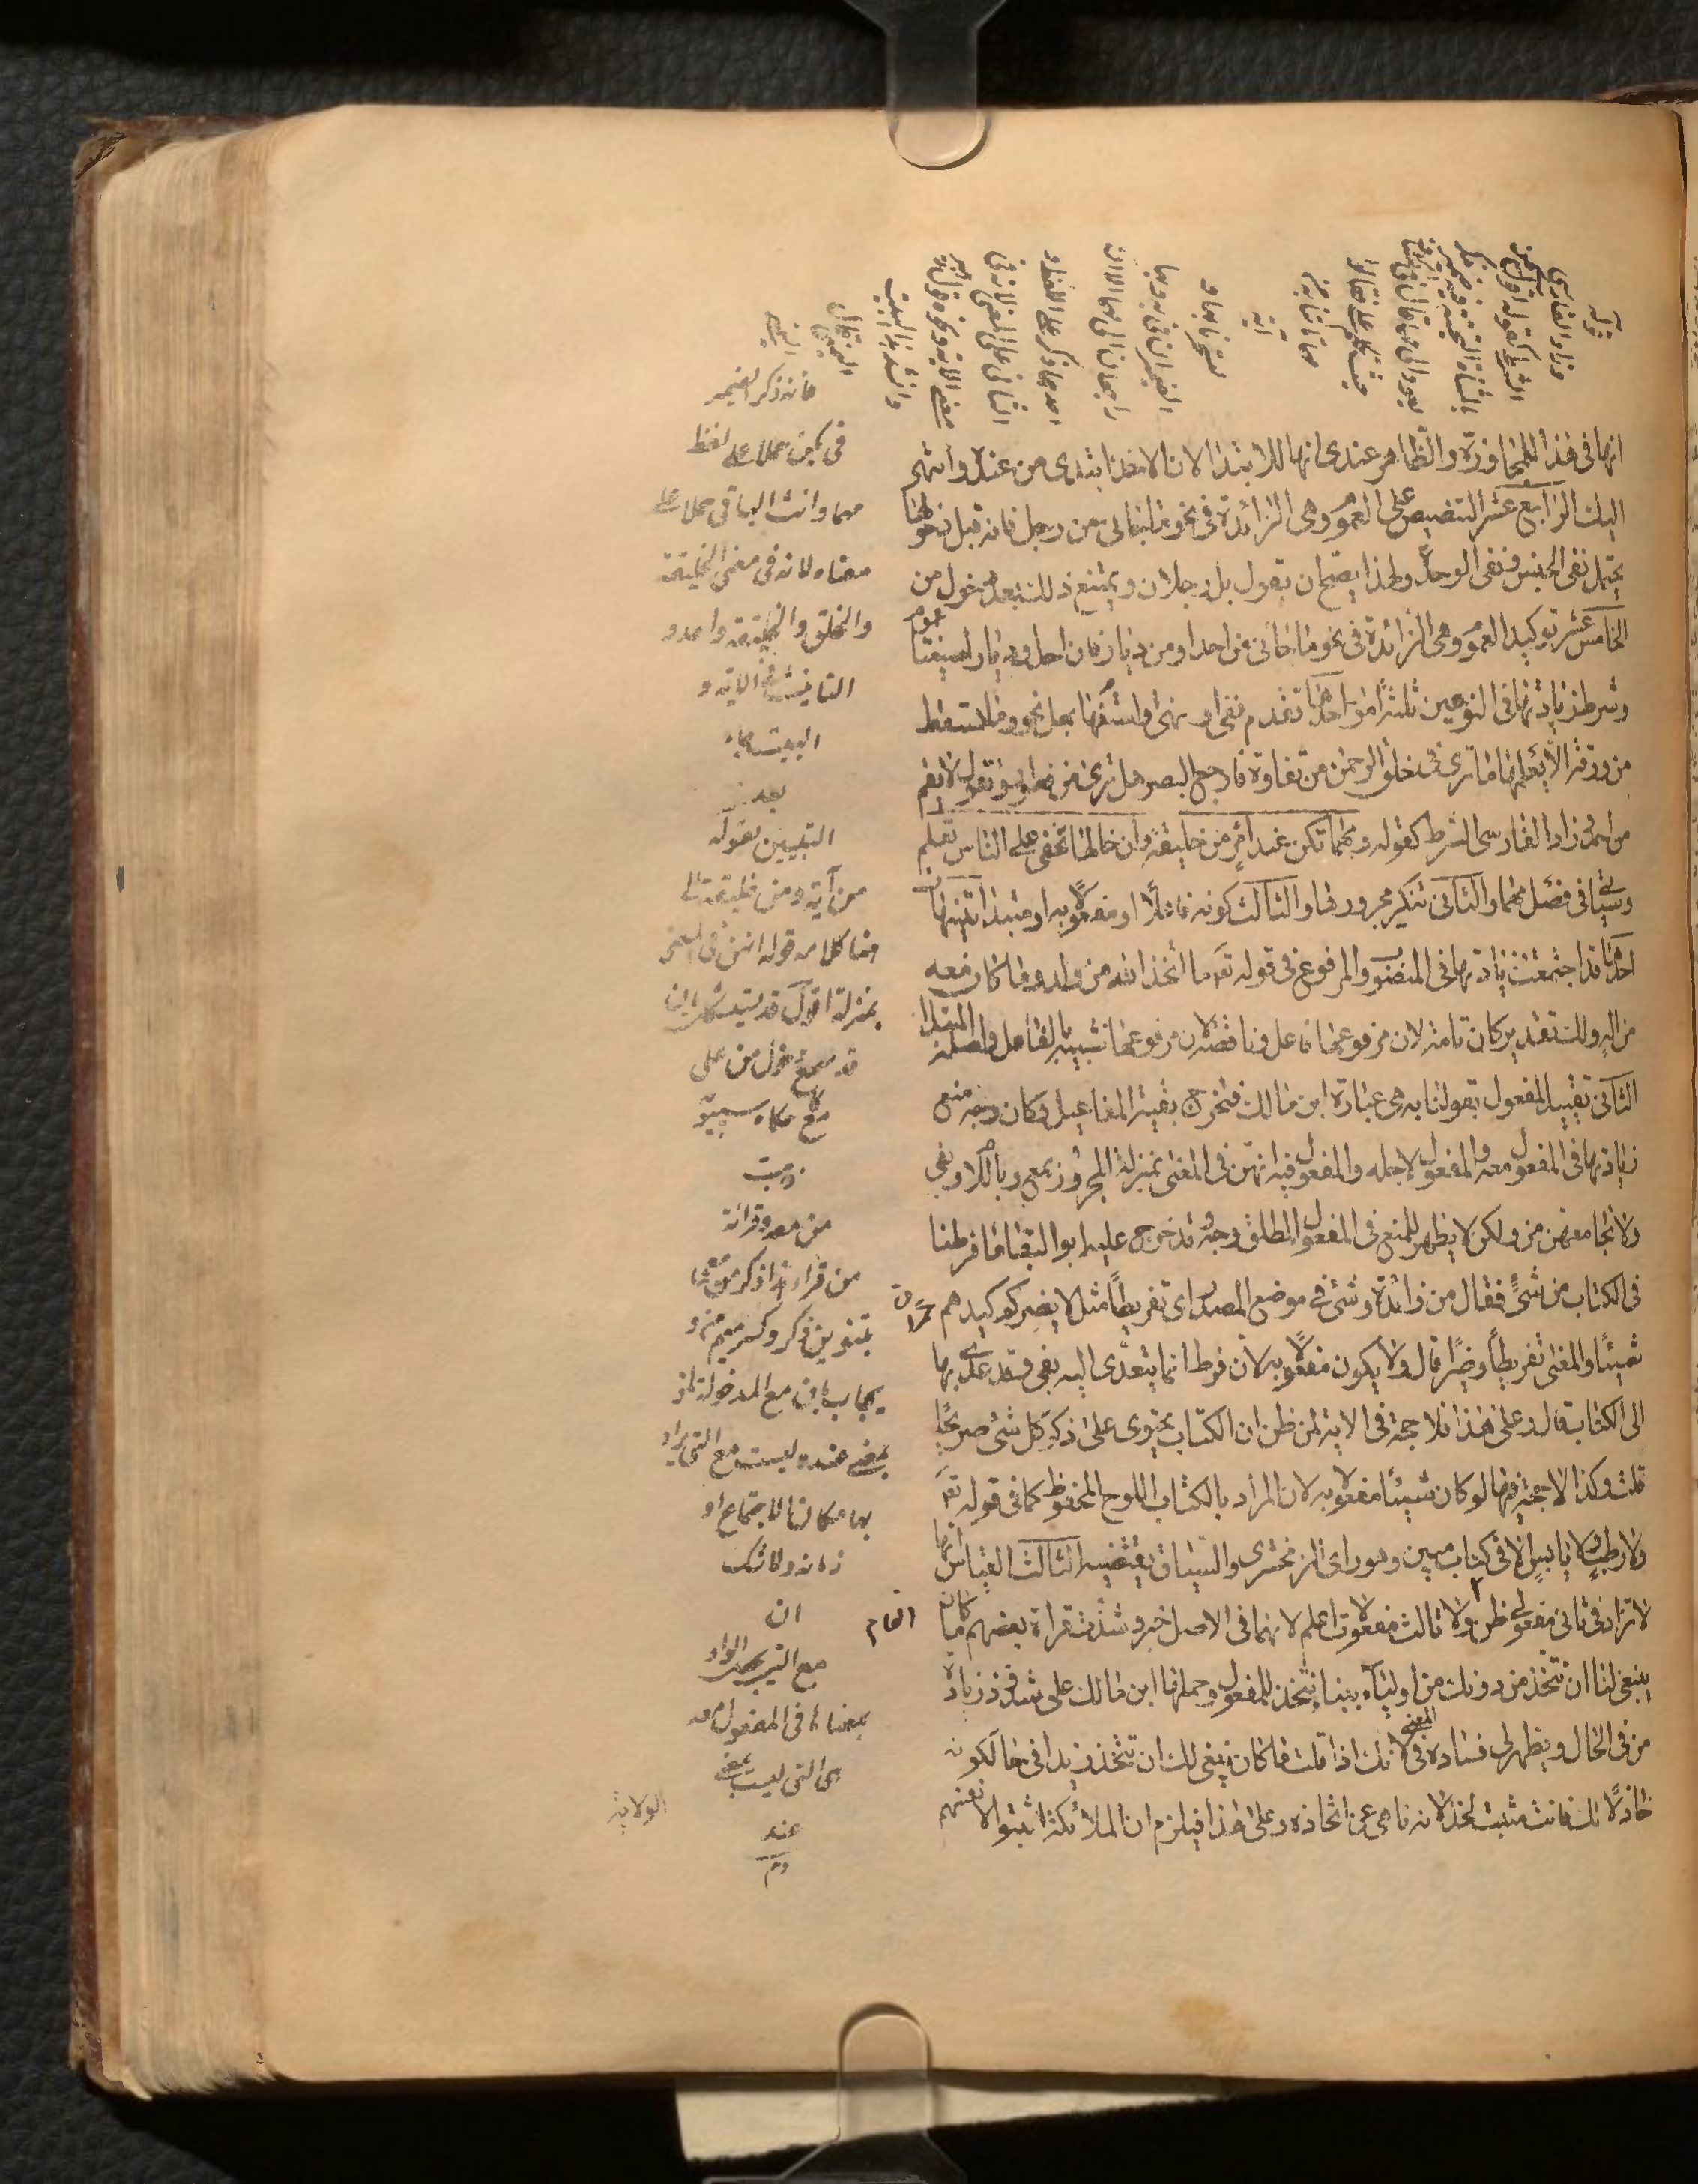 انها فى هذا للمجاوزة والظاهر عندى انها للابتدا لان الاخذ ابتدى من عنده وانتهى
اليك الرابع عشر التنصيص على العموم وهى الزائدة فى نحو ما جائنى من رجل فانه قبل دخولها
يحتمل نفى الجنس ونفى الوحدة ولهذا يصح ان يقول بل رجلان ويمتنع ذلك بعد دخول من
الخامس عشر توكيد العموم وهى الزائدة فى نحو ما جائنى من احد او من ديار فان احدا وديارا صيغتا عموم
وشرط زيادتها فى النوعين ثلثة امور احدها تقدم نفى او نهى او استفهام بهل نحو وما تسقط
من ورقة الا يعلمها ما ترى فى خلق الرحمن من تفاوت فارجع البصر هل ترى من فطور وتقول لا يقم
من احد وزاد الفارسى الشرط كقوله ومهما تكن عند امرء من خليقة وان خالها تخفى على الناس تعلم
وسياتى فى فصل مهما والثانى تنكير مجرورها والثالث كونه فاعلا او مفعولا به او مبتدا تنبيهان
احدها قد اجتمعت زيادتها فى المنصوب والمرفوع فى قوله تع ما اتخذ الله من ولد وما كان معه
من اله ولك تقدير كان تامة لان مرفوعها فاعل وناقصة لان مرفوعها شبيه بالفاعل واصله المبتدا
الثانى تقييد المفعول بقولنا به هى عبارة ابن مالك فتخرج بقية المفاعيل وكان وجه منع
زيادتها فى المفعول معه والمفعول لاجله والمفعول فيه انهن فى المعنى بمنزلة المجرور بمع وباللام وبفى
ولا تجامعهن من ولكن لا يظهر للمنع فى المفعول المطلق وجه وقد خرج عليه ابو البقا ما فرطنا
فى الكتاب من شئ فقال من زائدة وشئ فى موضع المصدر اى تفريطا مثل لا يضركم كيدهم
شيئا والمعنى تفريطا وضرا قال ولا يكون مفعولا به لان فرط انما يتعدى اليه بفى وقد عدى بها
الى الكتاب قال وعلى هذا فلا حجة فى الاية لمن ظن ان الكتاب يحتوى على ذكر كل شئ صريحا
قلت وكذا لا حجة فيها لو كان شيئا مفعولا به لان المراد بالكتاب اللوح المحفوظ كما فى قوله تع
ولا رطب ولا يابس الا فى كتاب مبين وهو راى الزمخشرى والسياق يقتضيه الثالث القياس انها
لا تزاد فى ثانى مفعولى ظن ولا ثالث مفعولات اعلم لانهما فى الاصل خبر وشذت قراة بعضهم ما كان
ينبغى لنا ان نتخذ من دونك من اولياء ببناء نتخذ للمفعول وحملها ابن مالك على شذوذ زيادة
من فى الحال ويظهر لى فساده فى المعنى لانك اذا قلت ما كان ينبغى لك ان تتخذ زيدا فى حالة كونه
خاذلا لك فانت مثبت لخذلانه ناهى عن اتخاذه وعلى هذا فيلزم ان الملائكة اثبتوا لانفسهم
الولاية
قوله
وزاد الفارسى
الشرط كقوله
احدهما ذكر على اللفظ و
الثانى على المعنى لانه فى
معنى الاية
فانه ذكر الضمير
فى يكن حملا على لفظ
مهما وانث الباقى حملا على
معناه لانه فى معنى الخليقة
والخلق والخليقة واحد و
التانيث فى الاية و
البيت جاء
بعد
التبيين بقوله
من آية ومن خليقة
قوله انهن فى المعنى
بمنزلة اقول قد يستشكل بان
قد سمع دخول من على
مع حكاه سيبويه
ذهبت
من معه وقرائة
من قراء هذا ذكر من معى
بتنوين ذكر وكسر ميم من و
يجاب بان مع المدخولة لمن
بمعنى عند وليست مع التى يراد
بها مكان الاجتماع او
زمانه ولا شك
ان
بمعناها فى المفعول معه
هى التى ليست بمعنى
عند